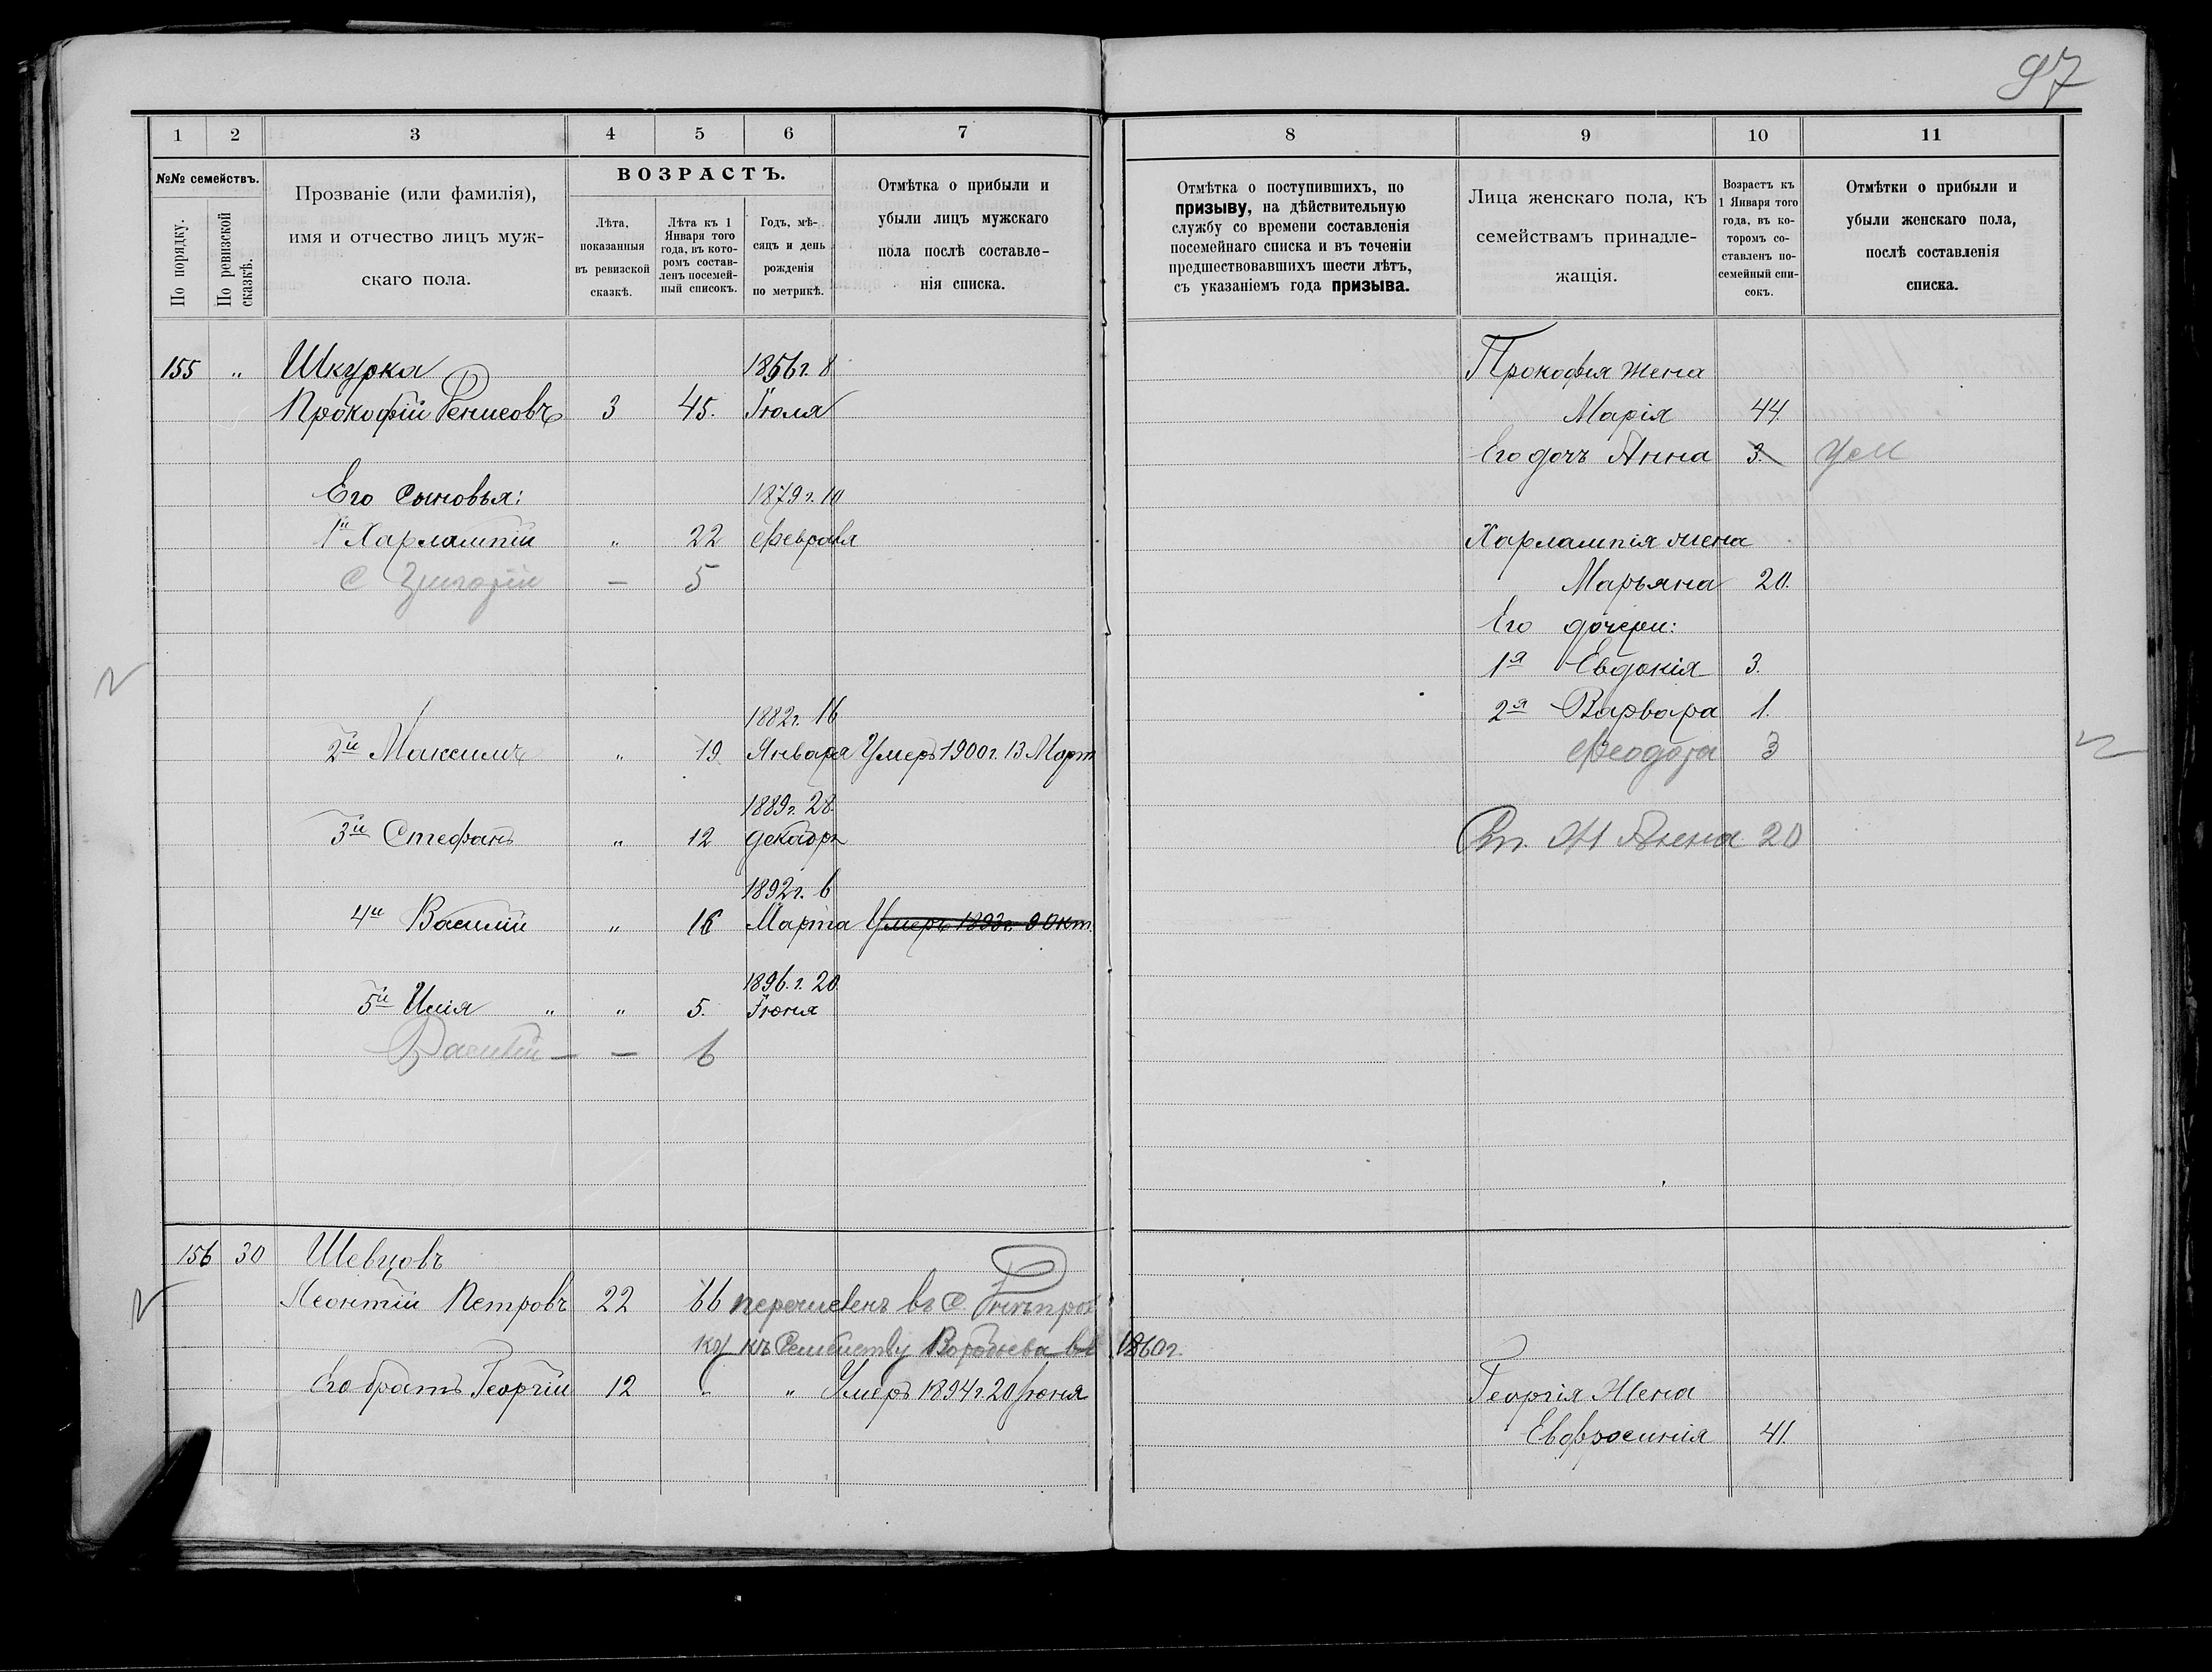 97
1 2 3 4 5 6 7
№№ семействъ.
По порядку.
По ревизской сказкѣ.
Прозваніе (или фамилія),
имя и отчество лицъ муж-
скаго пола.
ВОЗРАСТЪ.
Лѣта,
показанныя
въ ревизской
сказкѣ.
Лѣта къ 1
Января того
года, въ кото-
ромъ состав-
ленъ посемей-
ный списокъ.
Годъ, мѣ-
сяцъ и день
рожденія
по метрикѣ.
Отмѣтка о прибыли и
убыли лицъ мужскаго
пола послѣ составле-
нія списка.
155 " Шкурка 1856г. 8
Прокофій Денисовъ 3 45. Іюля
Его Сыновья: 1879г. 10
1й Харлампій " 22 Февраля
с Григорій — 5
1882г. 16
2й Максимъ " 19 Января Умеръ 1900г. 13 Март
1889г. 28.
3й Стефанъ " 12 Декабр
1892г. 6
4й Василій " 16 Марта Умеръ 1893г. 9 Окт.
1896.г. 20.
5й Илія " " 5. Іюня
Василій — — 6
156 30 Шевцовъ
Леонтій Петровъ 22 66 перечисленъ въ С.
къ Семейству Воробьева въ 1860г.
Его братъ Георгій 12 " " Умеръ 1894г. 20 Іюня
8 9 10 11
Отмѣтка о поступившихъ, по
призыву, на дѣйствительную
службу со времени составленія
посемейнаго списка и въ теченіи
предшествовавшихъ шести лѣтъ,
съ указаніемъ года призыва.
Лица женскаго пола, къ
семействамъ принадле-
жащія.
Возрастъ къ
1 Января того
года, въ ко-
торомъ со-
ставленъ по-
семейный спи-
сокъ.
Отмѣтки о прибыли и
убыли женскаго пола,
послѣ составленія
списка.
Прокофія жена
Марія 44
Его дочь Анна 3. Ум
Харлампія жена
Марьяна 20.
Его дочери:
1я Евдокія 3.
2я Варвара 1.
Феодора 3
Ст. Ж Анна 20
Георгія Жена
Евфросинія 41.